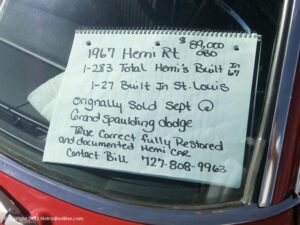 1967 Hemi Rt $89,000
OBO
1-283 Total Hemi's Built In 67
1-27 Built In St. Louis
Originally Sold Sept @
Grand Spaulding dodge
True Correct fully Restored
and documented Hemi CAR
Contact Bill 727-808-9963